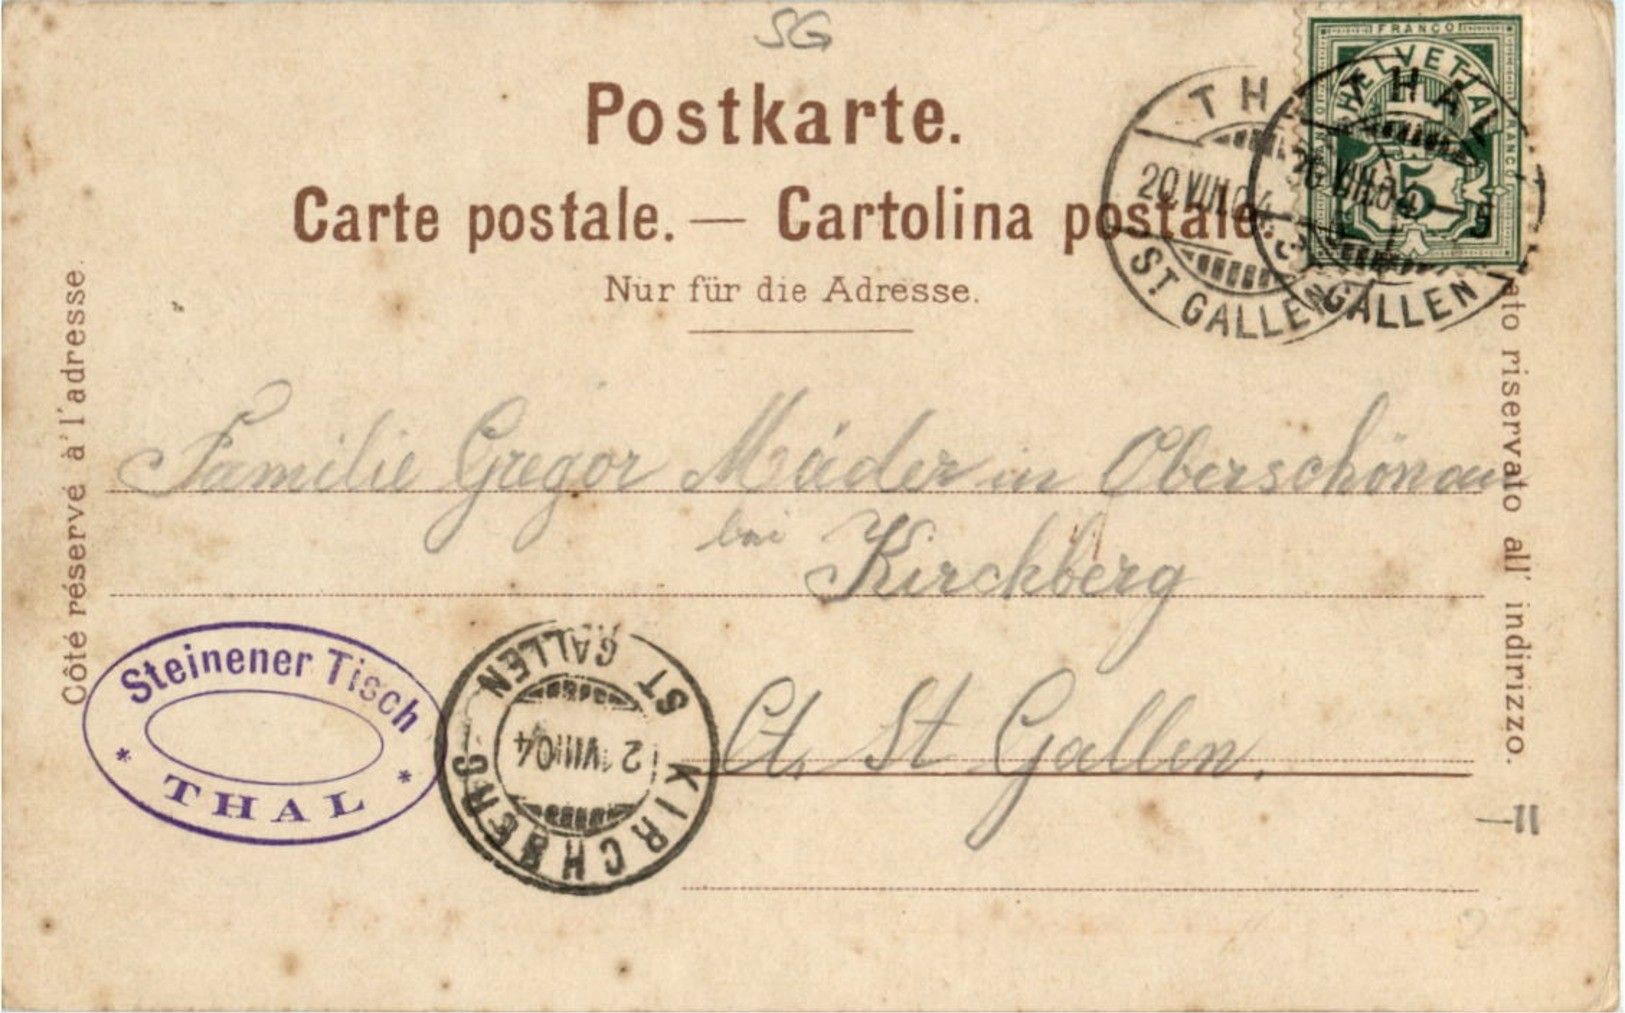 SG
Postkarte.
Carte postale. — Cartolina postale.
Nur für die Adresse.
FRANCO
HELVETIA
FRANCO
5
THAL
20.VIII.04
ST. GALLEN
THAL
20.VIII.04
GALLEN
Côté réservé à l'adresse.
Lato riservato all' indirizzo.
Familie Gregor Mäder in Oberschönau
bei Kirchberg
Ct. St Gallen.
Steinener Tisch
* THAL *
KIRCHBERG
VIII 04
ST GALLEN